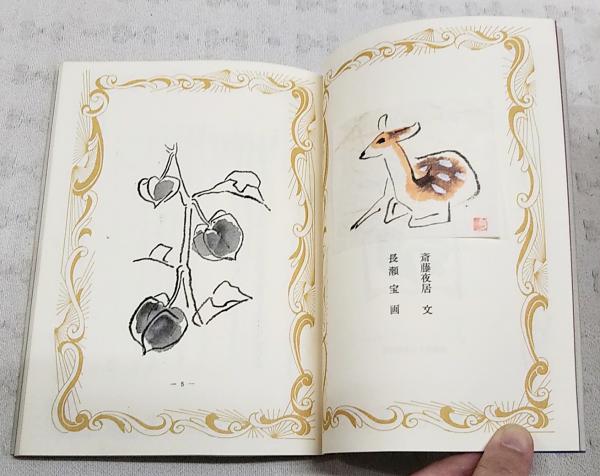 斎藤夜居 文
長瀬宝 画
— 5 —